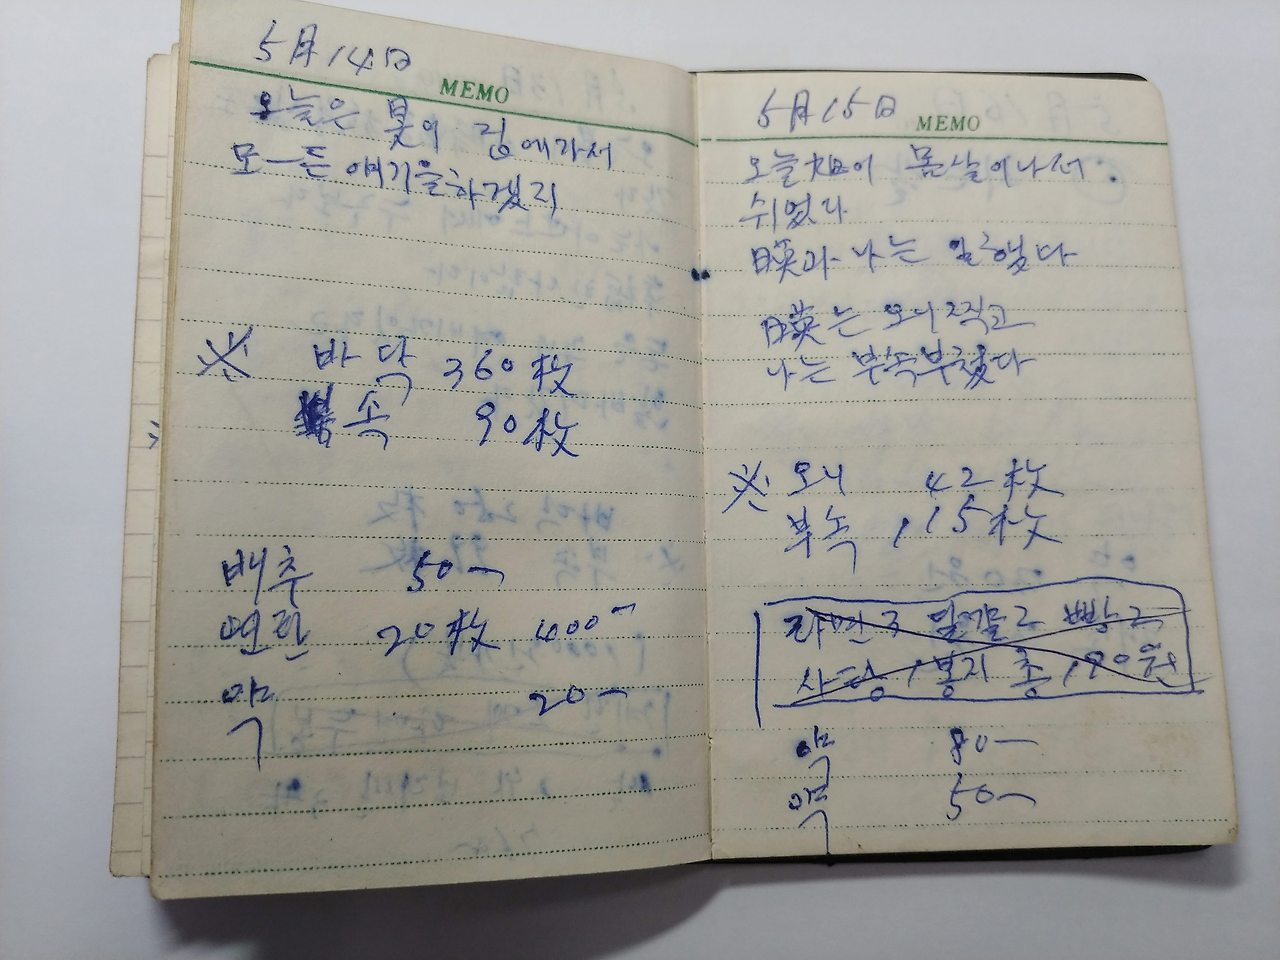 5月14日
MEMO
오늘은 昊이 집에가서
모든 얘기을하겠지
※ 바닥 360枚
속 90枚
배추 50-
연탄 20枚 400-
약 20-
5月15日
MEMO
오늘 몸살이나서
쉬었다
日英과 나는 일했다
日英는 오니 찍고
나는 부속부쳤다
※ 오니 42枚
부속 115枚
라면 3 밀가루 2 빵 2
사탕 1봉지 총 190원
약 80-
약 50-